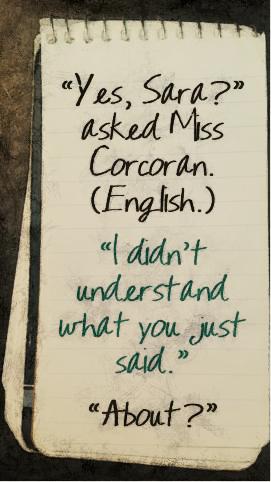 “Yes, Sara?”
asked Miss
Corcoran.
(English.)
“I didn’t
understand
what you just
said.”
“About?”